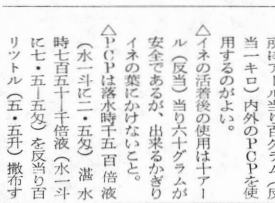 当一キロ）内外のPCPを使
用するのがよい。
△イネの活着後の使用は十アー
ル（反当）当り六十グラムが
安全であるが、出来るかぎり
イネの葉にかけないこと。
△PCPは落水時千五百倍液
（水一斗に二・五匁）湛水
時七百五十―千倍液（水一斗
に七・五―五匁）を反当り百
リットル（五・五升）撒布す